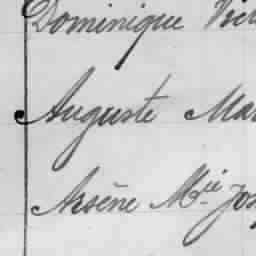 Dominique Vic
Auguste Mar
Arsène Mie Jos